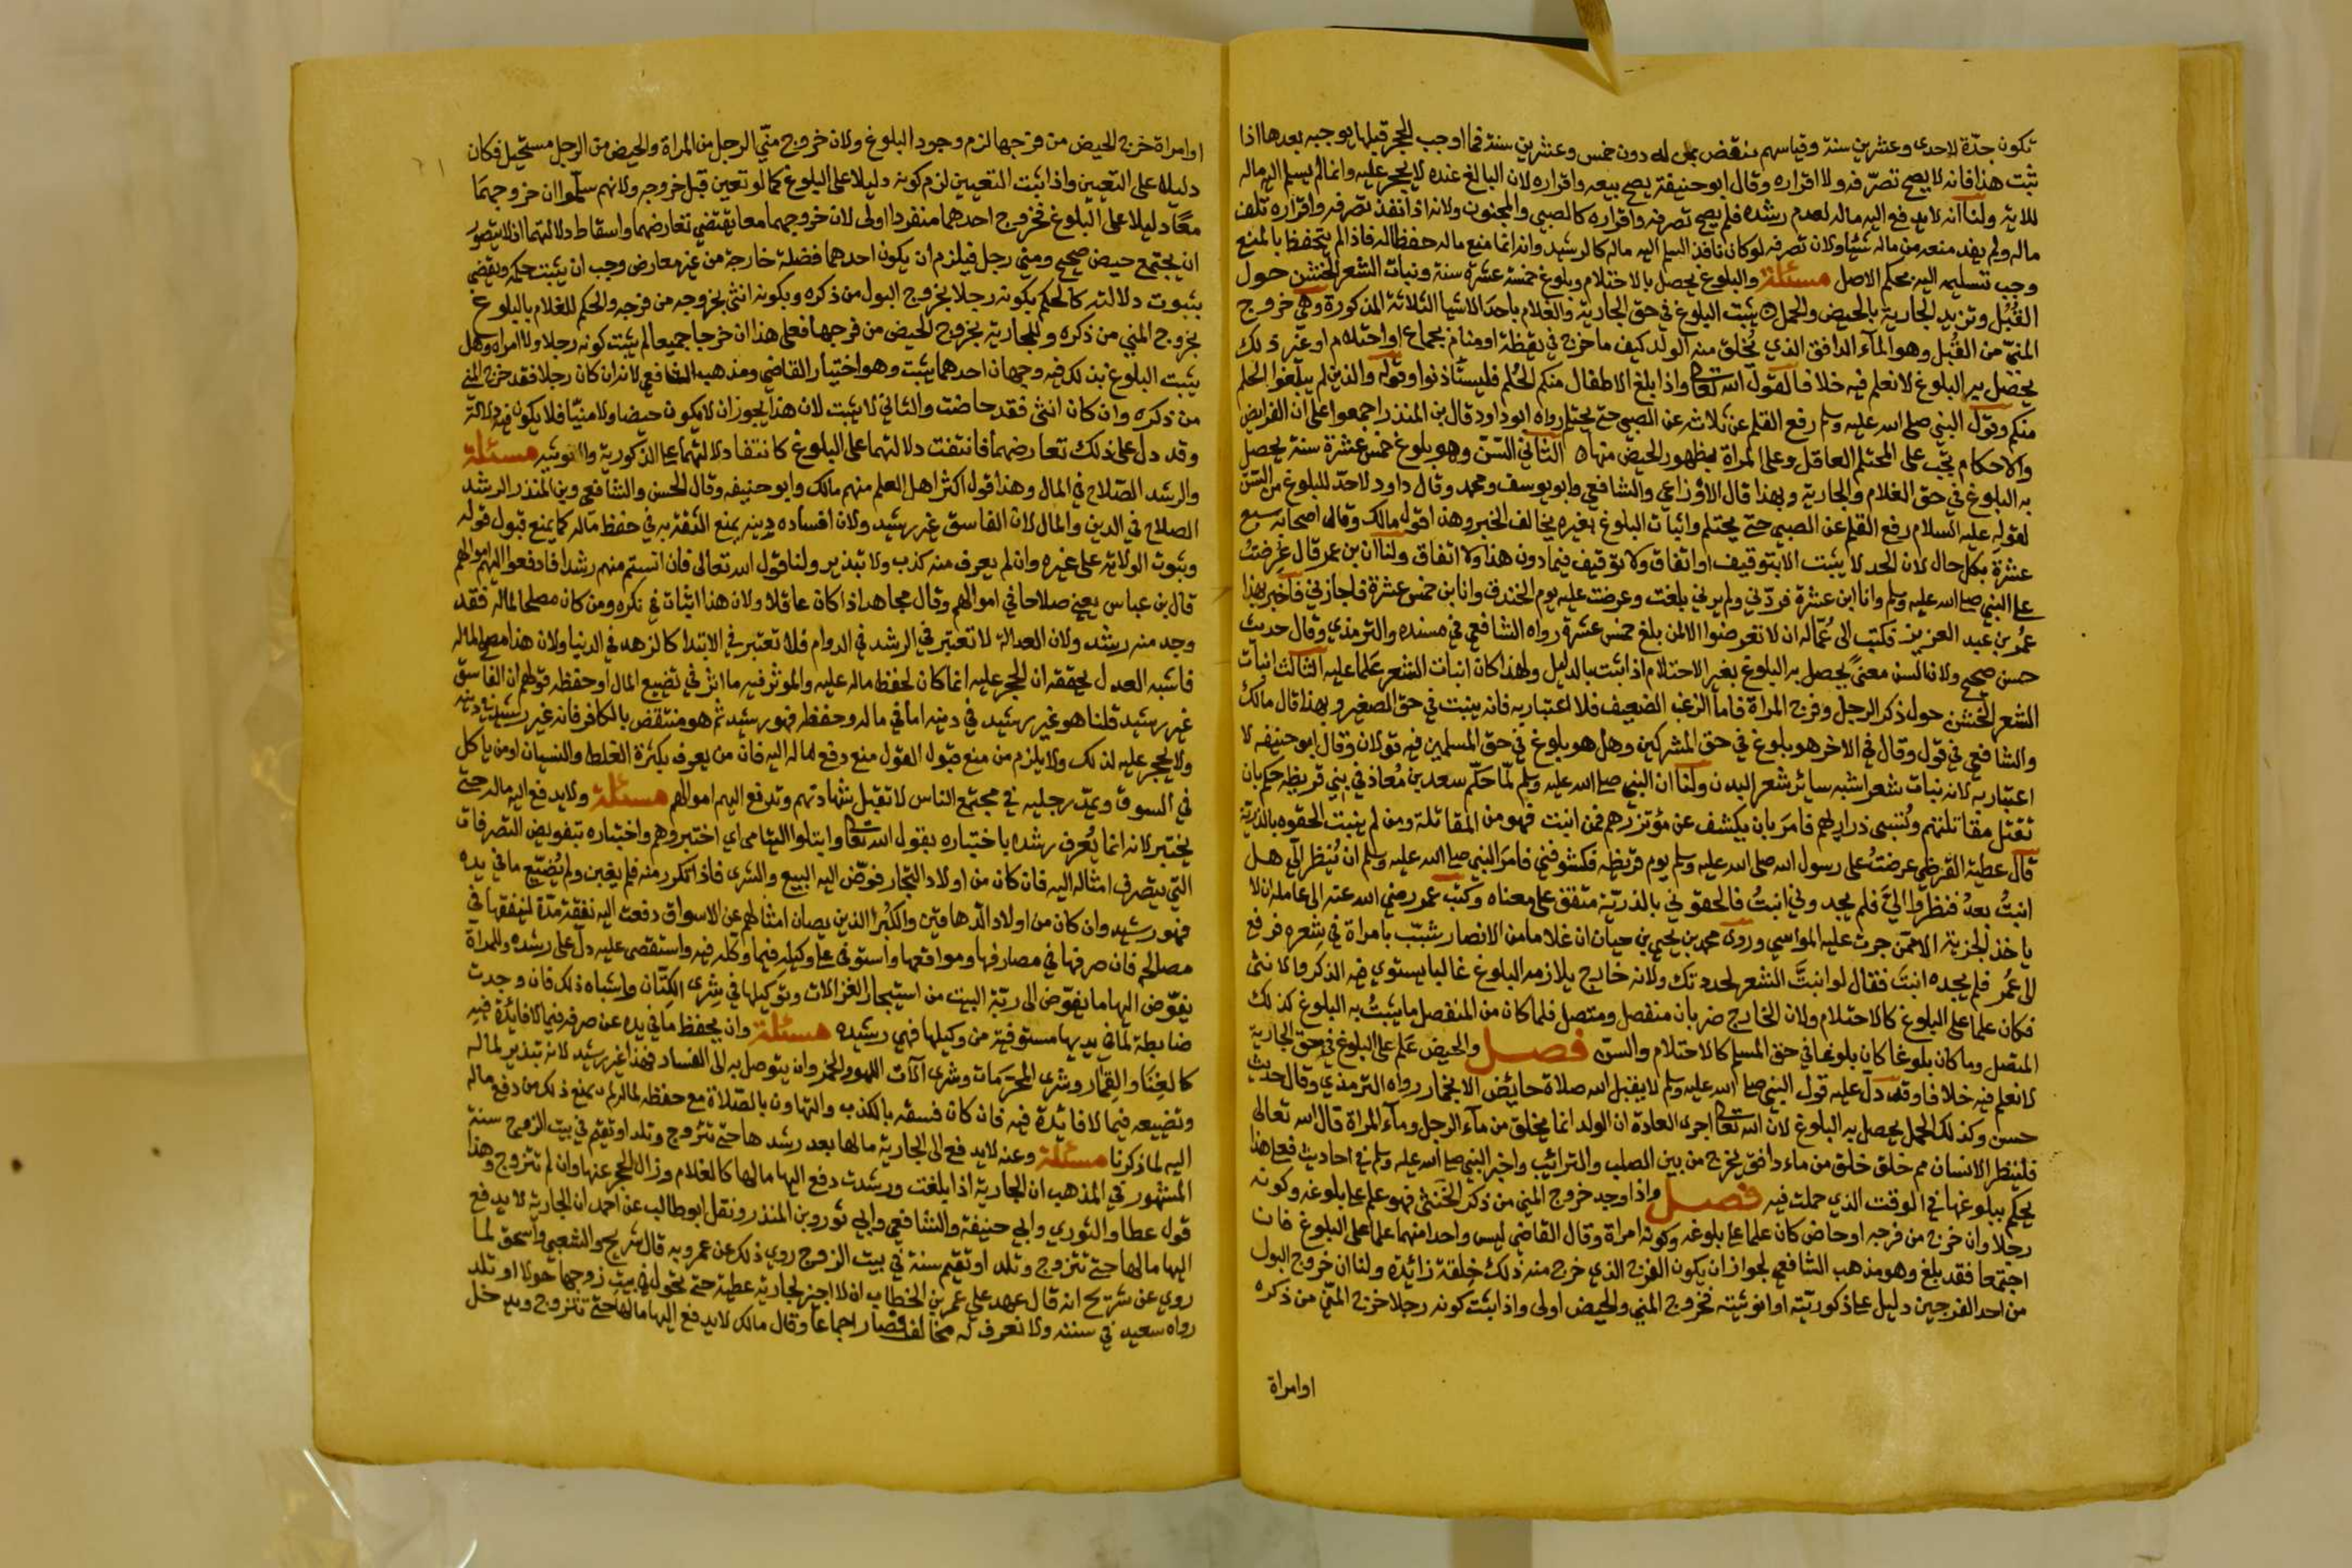 تكون جدّة لاحدى وعشرين سنة وقياسهم منتقض بمن له دون خمس وعشرين سنة فما اوجب الحجر قبلها يوجبه بعدها اذا
ثبت هذا فانه لا يصح تصرّفه ولا اقراره وقال ابو حنيفة يصح بيعه واقراره لان البالغ عنده لا يحجر عليه وانما لم يسلم اليه ماله
للاية ولنا انه لا يدفع اليه ماله لعدم رشده فلم يصح تصرفه واقراره كالصبي والمجنون ولانه اذا نفذ تصرفه واقراره تلف
ماله ولم يفد منعه من ماله شيئا ولان تصرفه لو كان نافذا لسلم اليه ماله كالرشيد وانه انما منع ماله حفظا له فاذا لم يتحفظ بالمنع
وجب تسليمه اليه بحكم الاصل مسئلة والبلوغ يحصل بالاحتلام وبلوغ خمسة عشرة سنة ونبات الشعر الخشن حول
القُبُل وتزيد الجارية بالحيض والحمل يثبت البلوغ في حق الجارية والغلام باحد الاشيا الثلاثة المذكورة وهي خروج
المنيّ من القُبُل وهو المآء الدافق الذي يُخلق منه الولد كيف ما خرج في يقظة او منام بجماع او احتلام او غير ذلك
يحصل به البلوغ لا نعلم فيه خلافا لقول الله تعالى واذا بلغ الاطفال منكم الحُلم فليستأذنوا وقوله والذين لم يبلغوا الحلم
منكم وقول النبي صلى الله عليه وسلم رفع القلم عن ثلاث عن الصبي حتى يحتلم رواه ابو داود قال بن المنذر اجمعوا على ان الفرايض
والاحكام تجب على المحتلم العاقل وعلى المراة بظهور الحيض منها الثاني السّن وهو بلوغ خمس عشرة سنة يحصل
به البلوغ في حق الغلام والجارية وبهذا قال الاوزاعي والشافعي وابو يوسف ومحمد وقال داود لا حدّ للبلوغ من السّن
لقوله عليه السلام رفع القلم عن الصبي حتى يحتلم واثبات البلوغ بغيره يخالف الخبر وهذا قول مالك وقال اصحابه سبع
عشرة بكل حال لان الحد لا يثبت الا بتوقيف او اتفاق ولا توقيف فيما دون هذا ولا اتفاق ولنا ان بن عمر قال عُرضتُ
على النبي صلى الله عليه وسلم وانا ابن عشرة فردّني ولم يرني بلغت وعرضت عليه يوم الخندق وانا بن خمس عشرة فاجازني فاخبر بهذا
عُمر بن عبد العزيز فكتب الى عُمّاله ان لا تعرضوا الا لمن بلغ خمس عشرة رواه الشافعي في مسنده والترمذي وقال حديث
حسن صحيح ولان السن معنىً يحصل به البلوغ بغير الاحتلام اذا ثبت بالدليل ولهذا كان انبات الشعر عَلما عليه الثالث انبات
الشعر الخشن حول ذكر الرجل وفرج المراة فاما الزغب الضعيف فلا اعتبار به فانه ينبت في حق الصغير وبهذا قال مالك
والشافعي في قول وقال في الاخر هو بلوغ في حق المشركين وهل هو بلوغ في حق المسلمين فيه قولان وقال ابو حنيفه لا
اعتبار به لانه نبات شعر اشبه سائر شعر البدن ولنا ان النبي صلى الله عليه وسلم لمّا حكّم سعد بن مُعاذ في بني قريظه حكم بان
تقتل مقاتلتهم وتُسبى ذراريهم فامر بان يكشف عن مؤتزرهم فمن انبت فهو من المقاتلة ومن لم ينبت الحقوه بالذرية
قال عطية القرظي عرضتُ على رسول الله صلى الله عليه وسلم يوم قريظه فكشوفني فامر النبي صلى الله عليه وسلم ان يُنظر الي هل
انبتُّ بعدُ فنظروا اليَّ فلم يجدوني انبتُ فالحقوني بالذريّة متفق على معناه وكتب عمر رضي الله عنه الى عامله ان لا
ياخذ الجزية الا ممن جرت عليه المواسي وروى محمد بن يحيى بن حبان ان غلاما من الانصار شبّب بامراة في شعره فرفع
الى عُمر فلم يجده انبت فقال لو انبتَّ الشعر لحددتك ولانه خارج يلازمه البلوغ غالبا يستوي فيه الذكر والانثى
فكان علما على البلوغ كالاحتلام ولان الخارج ضربان منفصل ومتصل فلما كان من المنفصل ما يثبتُ به البلوغ كذلك
المتصل وما كان بلوغا كان بلوغا في حق المسلم كالاحتلام والسنّ فصل والحيض عَلم على البلوغ في حق الجارية
لا نعلم فيه خلافا وقد دلّ عليه قول النبي صلى الله عليه وسلم لا يقبل الله صلاة حائض الا بخمار رواه الترمذي وقال حديث
حسن وكذلك الحمل يحصل به البلوغ لان الله تعالى اجرى العادة ان الولد انما يخلق من مآء الرجل ومآء المراة قال الله تعالى
فلينظر الانسان مم خلق خلق من ماء دافق يخرج من بين الصلب والترائب واخبر النبي صلى الله عليه وسلم في احاديث فعلى هذا
يحكم ببلوغها في الوقت الذي حملت فيه فصل واذا وجد خروج المني من ذكر الخنثى فهو علم على بلوغه وكونه
رجلا وان خرج من فرجه او حاض كان علما على بلوغه وكونه امراة وقال القاضي ليس واحدا منهما علما على البلوغ فان
اجتمعا فقد بلغ وهو مذهب الشافعي لجواز ان يكون الفرج الذي خرج منه ذلك خلقة زائدة ولنا ان خروج البول
من احد الفرجين دليل على ذكوريّته او انوثيته فخروج المني والحيض اولى واذا ثبت كونه رجلا خرج المنيّ من ذكره
اوامراة
او امراة خرج الحيض من فرجها لزم وجود البلوغ ولان خروج منيّ الرجل من المراة والحيض من الرجل مستحيل فكان
دليلا على التعيين واذا ثبت التعيين لزم كونه دليلا على البلوغ كما لو تعين قبل خروجه ولانهم سلّموا ان خروجهما
معًا دليلا على البلوغ فخروج احدهما منفردا اولى لان خروجهما معا يقتضي تعارضهما واسقاط دلالتهما اذ لا يتصور
ان يجتمع حيض صحيح ومني رجل فيلزم ان يكون احدهما فضلة خارجة من غير معارض وجب ان يثبت حكمه ويقضي
بثبوت دلالته كالحكم بكونه رجلا بخروج البول من ذكره وبكونه انثى بخروجه من فرجه والحكم للغلام بالبلوغ
بخروج المني من ذكره وللجارية بخروج الحيض من فرجها فعلى هذا ان خرجا جميعا لم يثبت كونه رجلا ولا امراه وهل
يثبت البلوغ بذلك فيه وجهان احدهما يثبت وهو اختيار القاضي ومذهب الشافعي لانه ان كان رجلا فقد خرج المني
من ذكره وان كان انثى فقد حاضت والثاني لا يثبت لان هذا يجوز ان لا يكون حيضا ولا منيّا فلا يكون فيه دلالة
وقد دل على ذلك تعارضهما فانتفت دلالتهما على البلوغ كانتفاء دلالتهما على الذكورية والانوثيه مسئلة
والرشد الصّلاح في المال وهذا قول اكثر اهل العلم منهم مالك وابو حنيفه وقال الحسن والشافعي وبن المنذر الرشد
الصلاح في الدين والمال لان الفاسق غير رشيد ولان افساده دينه يمنع الثقة به في حفظ ماله كما يمنع قبول قوله
وثبوت الولاية على غيره وان لم يعرف منه كذب ولا تبذير ولنا قول الله تعالى فان انستم منهم رشدا فادفعوا اليهم اموالهم
قال بن عباس يعني صلاحا في اموالهم وقال مجاهد اذا كان عاقلا ولان هذا اثبات في نكره ومن كان مصلحا لماله فقد
وجد منه رشد ولان العدالة لا تعتبر في الرشد في الدوام فلا تعتبر في الابتدا كالزهد في الدنيا ولان هذا مصلح لماله
فاشبه العدل يحققه ان الحجر عليه انما كان لحفظ ماله عليه والموثر فيه ما اثر في تضييع المال او حفظه قولهم ان الفاسق
غير رشيد قلنا هو غير رشيد في دينه اما في ماله وحفظه فهو رشيد ثم هو منتقض بالكافر فانه غير رشيد في دينه
ولا يحجر عليه لذلك ولا يلزم من منع قبول القول منع دفع ماله اليه فان من يعرف بكثرة الغلط والنسيان او من ياكل
في السوق ويمدّ رجليه في مجتمع الناس لا تقبل شهادتهم وتدفع اليهم اموالهم مسئلة ولا يدفع اليه ماله حتى
يختبر لانه انما يُعرف رشده باختباره بقول الله تعالى وابتلوا اليتامى اي اختبروهم واختباره بتفويض التصرفات
التي يتصرف امثاله اليه فان كان من اولاد التجار فوّض اليه البيع والشرى فاذا تكرر منه فلم يغبن ولم يُضيّع ما في يده
فهو رشيد وان كان من اولاد الدهاقين والكُبَرا الذين يصان امثالهم عن الاسواق دفعت اليه نفقة مدّة لينفقها في
مصالحه فان صرفها في مصارفها ومواقعها واستوفى على وكيله فيما وكله فيه واستقصى عليه دلّ على رشده والمراة
يفوّض اليها ما يفوّض الى ربّة البيت من استيجار الغزالات وتوكيلها في شِرى الكتّان واشباه ذلك فان وجدت
ضابطة لما في يديها مستوفية من وكيلها فهي رشيده مسئلة وان يحفظ ما في يده عن صرفه فيما لا فائدة فيه
كالغِنَا والقِمَار وشرى المحرّمات وشرى آلات اللهو والخمر وان يتوصل به الى الفساد فهذا غير رشيد لانه تبذير لماله
وتضييعه فيما لا فائدة فيه فان كان فسقه بالكذب والتهاون بالصّلاة مع حفظه لماله لم يمنع ذلك من دفع ماله
اليه لما ذكرنا مسئلة وعنه لا يدفع الى الجارية مالها بعد رشدها حتى تتزوج وتلد او تقيم في بيت الزوج سنة
المشهور في المذهب ان الجارية اذا بلغت ورشدت دفع اليها مالها كالغلام وزال الحجر عنها وان لم تتزوج وهذا
قول عطا والثوري وابي حنيفة والشافعي وابي ثور وبن المنذر ونقل ابو طالب عن احمد ان الجارية لا يدفع
اليها مالها حتى تتزوج وتلد او تقيم سنة في بيت الزوج روي ذلك عن عمر وبه قال شريح والشعبي واسحق لما
روي عن شريح انه قال عهد علي عمر بن الخطاب ان لا اجيز لجارية عطية حتى تحول في بيت زوجها حولا او تلد
رواه سعيد في سننه ولا نعرف له مخالف فصار اجماعا وقال مالك لا يدفع اليها مالها حتى تتزوج ويدخل